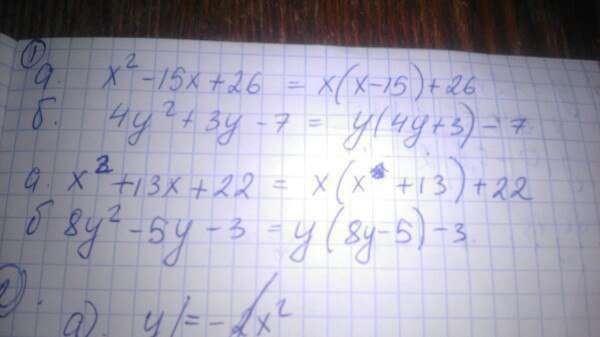 ①
а. x² - 15x + 26 = x(x-15) + 26
б. 4y² + 3y - 7 = y(4y+3) - 7
а. x² + 13x + 22 = x(x + 13) + 22
б 8y² - 5y - 3 = y(8y-5) - 3
②.
а). y = -2x²